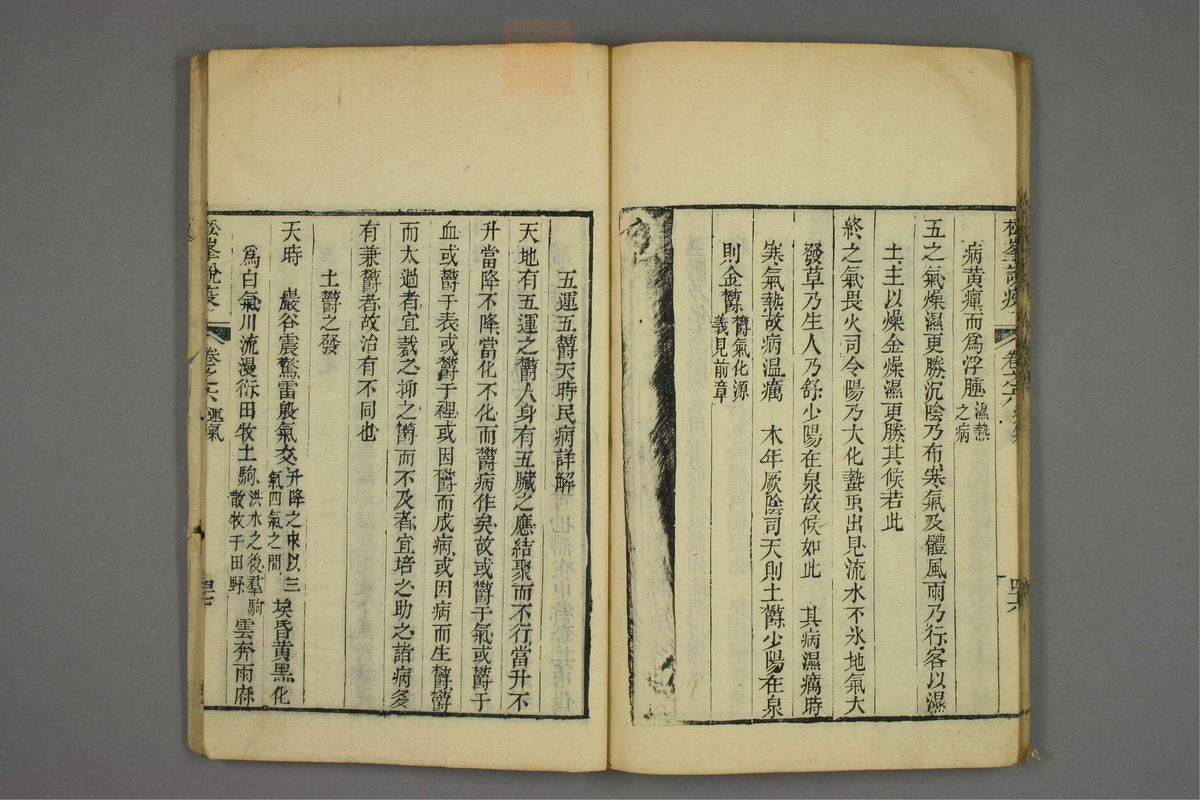 松峯說疫
卷之六
病黃癉而為浮腫濕熱之病
五之氣燥濕更勝沉陰乃布寒氣及體風雨乃行客以濕
土主以燥金燥濕更勝其候若此
終之氣畏火司令陽乃大化蟄虫出見流水不氷地氣大
發草乃生人乃舒少陽在泉故候如此　其病濕癘時
寒氣熱故病溫癘　木年厥陰司天則土欝少陽在泉
則金欝欝氣化源義見前章
五運五欝天時民病詳解
天地有五運之欝人身有五臟之應結聚而不行當升不
升當降不降當化不化而欝病作矣故或欝于氣或欝于
血或欝于表或欝于裡或因欝而成病或因病而生欝欝
而太過者宜裁之抑之欝而不及者宜培之助之諸病多
有兼欝者故治有不同也
土欝之發
天時　巖谷震驚雷殷氣交升降之中以三氣四氣之間埃昏黃黑化
為白氣川流漫衍田牧土駒洪水之後羣駒散牧于田野雲奔雨府
松峯說疫
卷之六
運氣